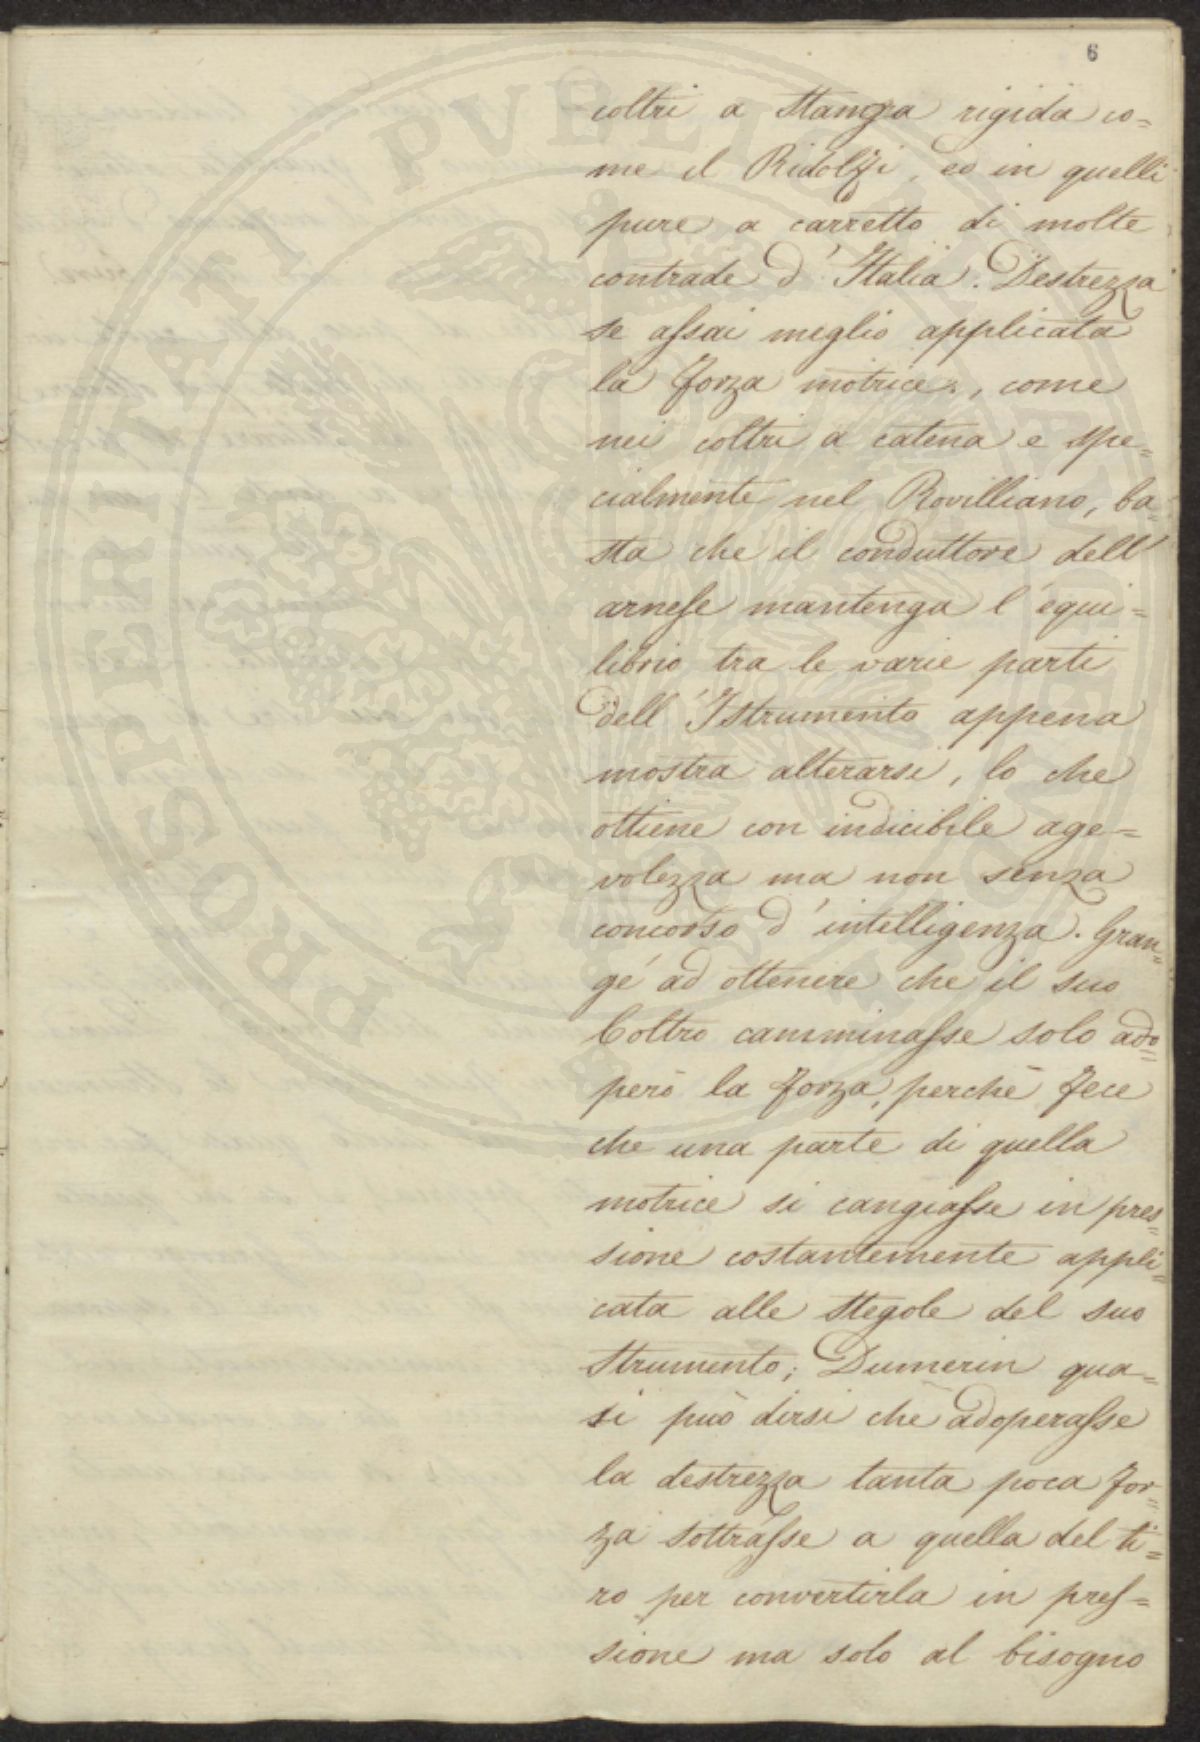 6
coltri a stanga rigida co=
me il Ridolfi, ed in quelli
pure a carretto di molte
contrade d'Italia. Destrezza
se assai meglio applicata
la forza motrice, come
nei coltri a catena e spe=
cialmente nel Rovilliano, ba=
sta che il conduttore dell'
arnese mantenga l'equi=
librio tra le varie parti
dell'Istrumento appena
mostra alterarsi, lo che
ottiene con indicibile age=
volezza ma non senza
concorso d'intelligenza. Gran=
gé ad ottenere che il suo
Coltro camminasse solo ado=
però la forza, perchè fece
che una parte di quella
motrice si cangiasse in pres=
sione costantemente appli=
cata alle stegole del suo
strumento; Dumerin qua=
si può dirsi che adoperasse
la destrezza tanta poca for=
za sottrasse a quella del ti=
ro per convertirla in pres=
sione ma solo al bisogno
PROSPERITATI PVBLICAE